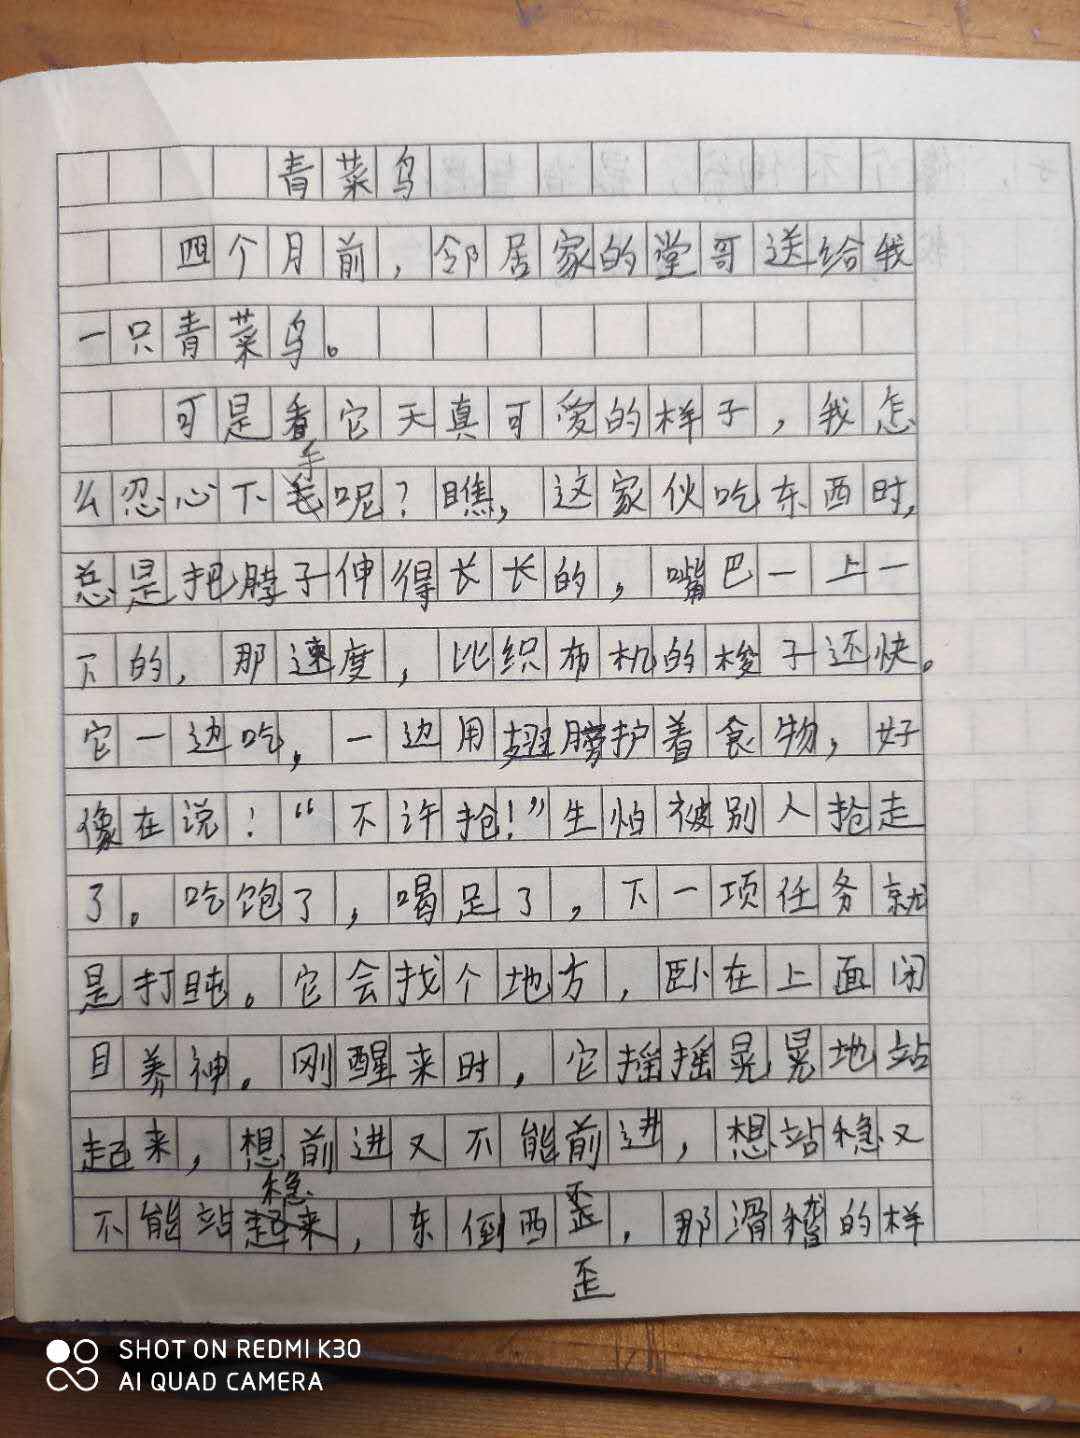 青菜鸟
四个月前，邻居家的堂哥送给我
一只青菜鸟。
可是看它天真可爱的样子，我怎
手
么忍心下毛呢？瞧，这家伙吃东西时，
总是把脖子伸得长长的，嘴巴一上一
下的，那速度，比织布机的梭子还快。
它一边吃，一边用翅膀护着食物，好
像在说：“不许抢！”生怕被别人抢走
了。吃饱了，喝足了，下一项任务就
是打盹。它会找个地方，卧在上面闭
目养神。刚醒来时，它摇摇晃晃地站
起来，想前进又不能前进，想站稳又
稳
不能站起来，东倒西歪，那滑稽的样
歪
SHOT ON REDMI K30
AI QUAD CAMERA